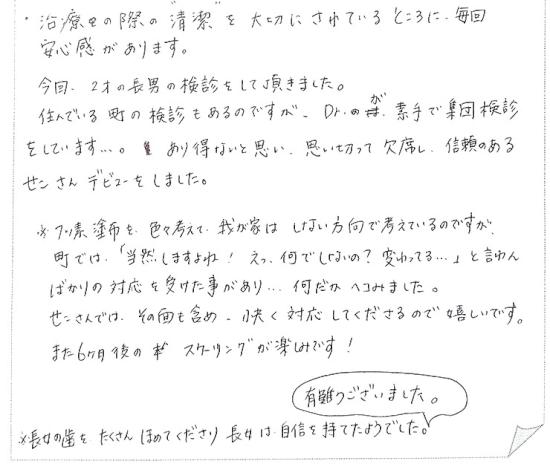 ・治療その際の"清潔"を大切にされているところに、毎回
安心感があります。
今回、2才の長男の検診をして頂きました。
住んでいる町の検診もあるのですが、Dr.が素手で集団検診
をしています…。あり得ないと思い、思い切って欠席し、信頼のある
せンさんデビューをしました。
※フッ素塗布を、色々考えて、我が家はしない方向で考えているのですが、
町では、「当然しますよね!えっ、何でしないの?変わってる…」と言わん
ばかりの対応を受けた事があり…何だかヘコみました。
せンさんでは、その面も含め、快く対応してくださるので嬉しいです。
また6ヶ月後のスケーリングが楽しみです!
有難うございました。
※長女の歯をたくさんほめてくださり長女は自信を持てたようでした。